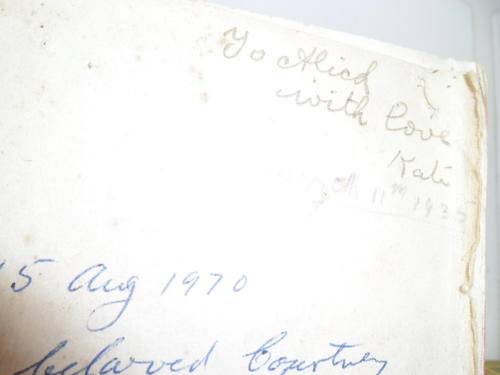 To Alick
with love
Kate
11th 1935
15 Aug 1970
beloved Courtney